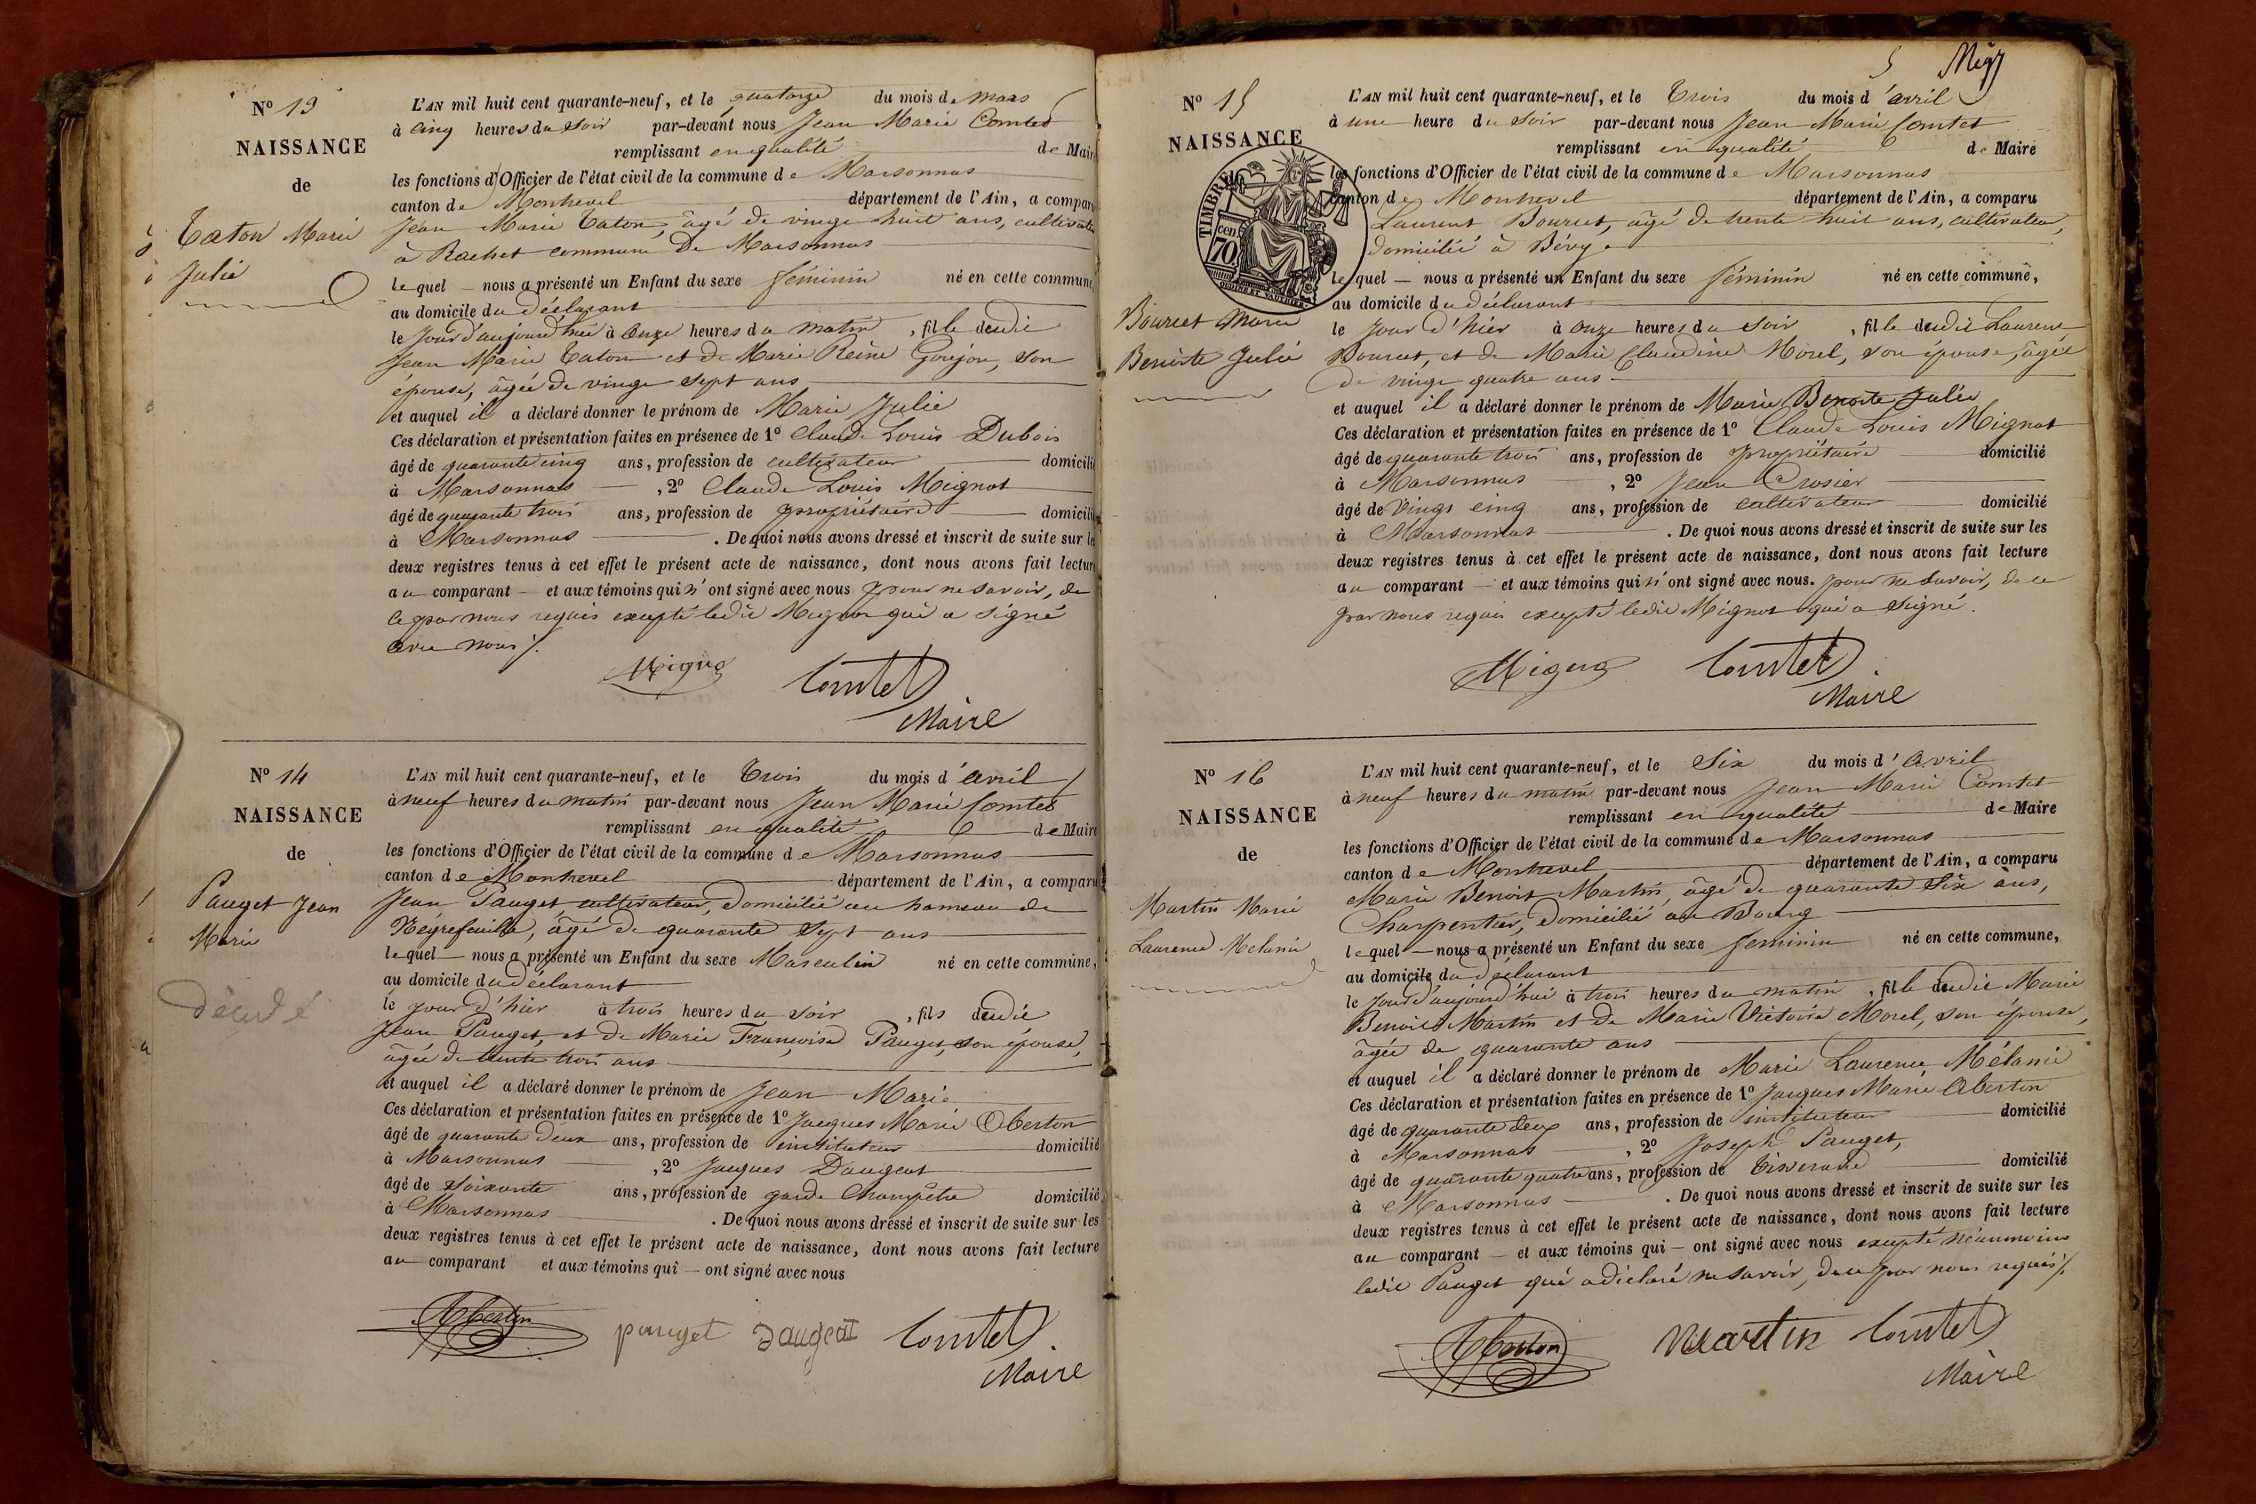 N° 13
NAISSANCE
de
Taton Marie
Julie
L'AN mil huit cent quarante-neuf, et le quatorze du mois de mars
à cinq heures du soir par-devant nous Jean Marie Comtet
remplissant en qualité de Maire
les fonctions d'Officier de l'état civil de la commune de Marsonnas
canton de Montrevel département de l'Ain, a comparu
Jean Marie Taton, âgé de vingt huit ans, cultivateur
à Rachet commune de Marsonnas
lequel nous a présenté un Enfant du sexe féminin né en cette commune,
au domicile du déclarant
le jour d'aujourd'hui à onze heures du matin, fille dudit
Jean Marie Taton et de Marie Reine Goujon, son
épouse, âgée de vingt sept ans
et auquel il a déclaré donner le prénom de Marie Julie
Ces déclaration et présentation faites en présence de 1° Claude Louis Dubois
âgé de quarante cinq ans, profession de cultivateur domicilié
à Marsonnas, 2° Claude Louis Mignot
âgé de quarante trois ans, profession de propriétaire domicilié
à Marsonnas. De quoi nous avons dressé et inscrit de suite sur les
deux registres tenus à cet effet le présent acte de naissance, dont nous avons fait lecture
au comparant et aux témoins qui n'ont signé avec nous pour ne savoir, de
ce par nous requis excepté ledit Mignot qui a signé
avec nous
Mignot Comtet
Maire
N° 14
NAISSANCE
de
Pauget Jean
Marie
décédé
L'AN mil huit cent quarante-neuf, et le trois du mois d'avril
à neuf heures du matin par-devant nous Jean Marie Comtet
remplissant en qualité de Maire
les fonctions d'Officier de l'état civil de la commune de Marsonnas
canton de Montrevel département de l'Ain, a comparu
Jean Pauget cultivateur, domicilié au hameau de
Neyrefeuille, âgé de quarante sept ans
lequel nous a présenté un Enfant du sexe Masculin né en cette commune,
au domicile du déclarant
le jour d'hier à trois heures du soir, fils dudit
Jean Pauget, et de Marie Françoise Pauget, son épouse,
âgée de trente trois ans
et auquel il a déclaré donner le prénom de Jean Marie
Ces déclaration et présentation faites en présence de 1° Jacques Marie Oberton
âgé de quarante deux ans, profession de instituteur domicilié
à Marsonnas, 2° Jacques Daugeat
âgé de soixante ans, profession de garde Champêtre domicilié
à Marsonnas. De quoi nous avons dressé et inscrit de suite sur les
deux registres tenus à cet effet le présent acte de naissance, dont nous avons fait lecture
au comparant et aux témoins qui ont signé avec nous
Oberton pauget daugeat Comtet
Maire
5
N° 15
NAISSANCE
TIMBRE
70 cen
Bourcet Marie
Benoite Julie
L'AN mil huit cent quarante-neuf, et le trois du mois d'avril
à une heure du soir par-devant nous Jean Marie Comtet
remplissant en qualité de Maire
les fonctions d'Officier de l'état civil de la commune de Marsonnas
canton de Montrevel département de l'Ain, a comparu
Laurent Bourcet, âgé de trente huit ans, cultivateur,
domicilié à Bévy
lequel nous a présenté un Enfant du sexe féminin né en cette commune,
au domicile du déclarant
le jour d'hier à onze heures du soir, fille dudit Laurent
Bourcet, et de Marie Claudine Morel, son épouse, âgée
de vingt quatre ans
et auquel il a déclaré donner le prénom de Marie Benoite Julie
Ces déclaration et présentation faites en présence de 1° Claude Louis Mignot
âgé de quarante trois ans, profession de propriétaire domicilié
à Marsonnas, 2° Jean Crosier
âgé de vingt cinq ans, profession de cultivateur domicilié
à Marsonnas. De quoi nous avons dressé et inscrit de suite sur les
deux registres tenus à cet effet le présent acte de naissance, dont nous avons fait lecture
au comparant et aux témoins qui n'ont signé avec nous. pour ne savoir, de ce
par nous requis excepté ledit Mignot qui a signé.
Mignot Comtet
Maire
N° 16
NAISSANCE
de
Martin Marie
Laurence Mélanie
L'AN mil huit cent quarante-neuf, et le six du mois d'avril
à neuf heures du matin par-devant nous Jean Marie Comtet
remplissant en qualité de Maire
les fonctions d'Officier de l'état civil de la commune de Marsonnas
canton de Montrevel département de l'Ain, a comparu
Marie Benoit Martin, âgé de quarante six ans,
Charpentier, domicilié au Bourg
lequel nous a présenté un Enfant du sexe féminin né en cette commune,
au domicile du déclarant
le jour d'aujourd'hui à trois heures du matin, fille dudit Marie
Benoit Martin et de Marie Victoire Morel, son épouse,
âgée de quarante ans
et auquel il a déclaré donner le prénom de Marie Laurence Mélanie
Ces déclaration et présentation faites en présence de 1° Jacques Marie Oberton
âgé de quarante deux ans, profession de instituteur domicilié
à Marsonnas, 2° Joseph Pauget,
âgé de quarante quatre ans, profession de Tisserand domicilié
à Marsonnas. De quoi nous avons dressé et inscrit de suite sur les
deux registres tenus à cet effet le présent acte de naissance, dont nous avons fait lecture
au comparant et aux témoins qui ont signé avec nous excepté néanmoins
ledit Pauget qui a déclaré ne savoir, de ce par nous requis
Oberton Martin Comtet
Maire